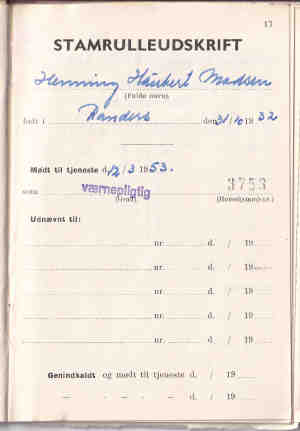 17
STAMRULLEUDSKRIFT
Henning Madsen
(Fulde navn)
født i Randers den 31/10 19 32
Mødt til tjeneste d. 12/3 1953.
som værnepligtig 3753
(Grad) (Hovednummer)
Udnævnt til:
nr. d. / 19
nr. d. / 19
nr. d. / 19
nr. d. / 19
nr. d. / 19
Genindkaldt og mødt til tjeneste d. / 19
— — — — d. / 19